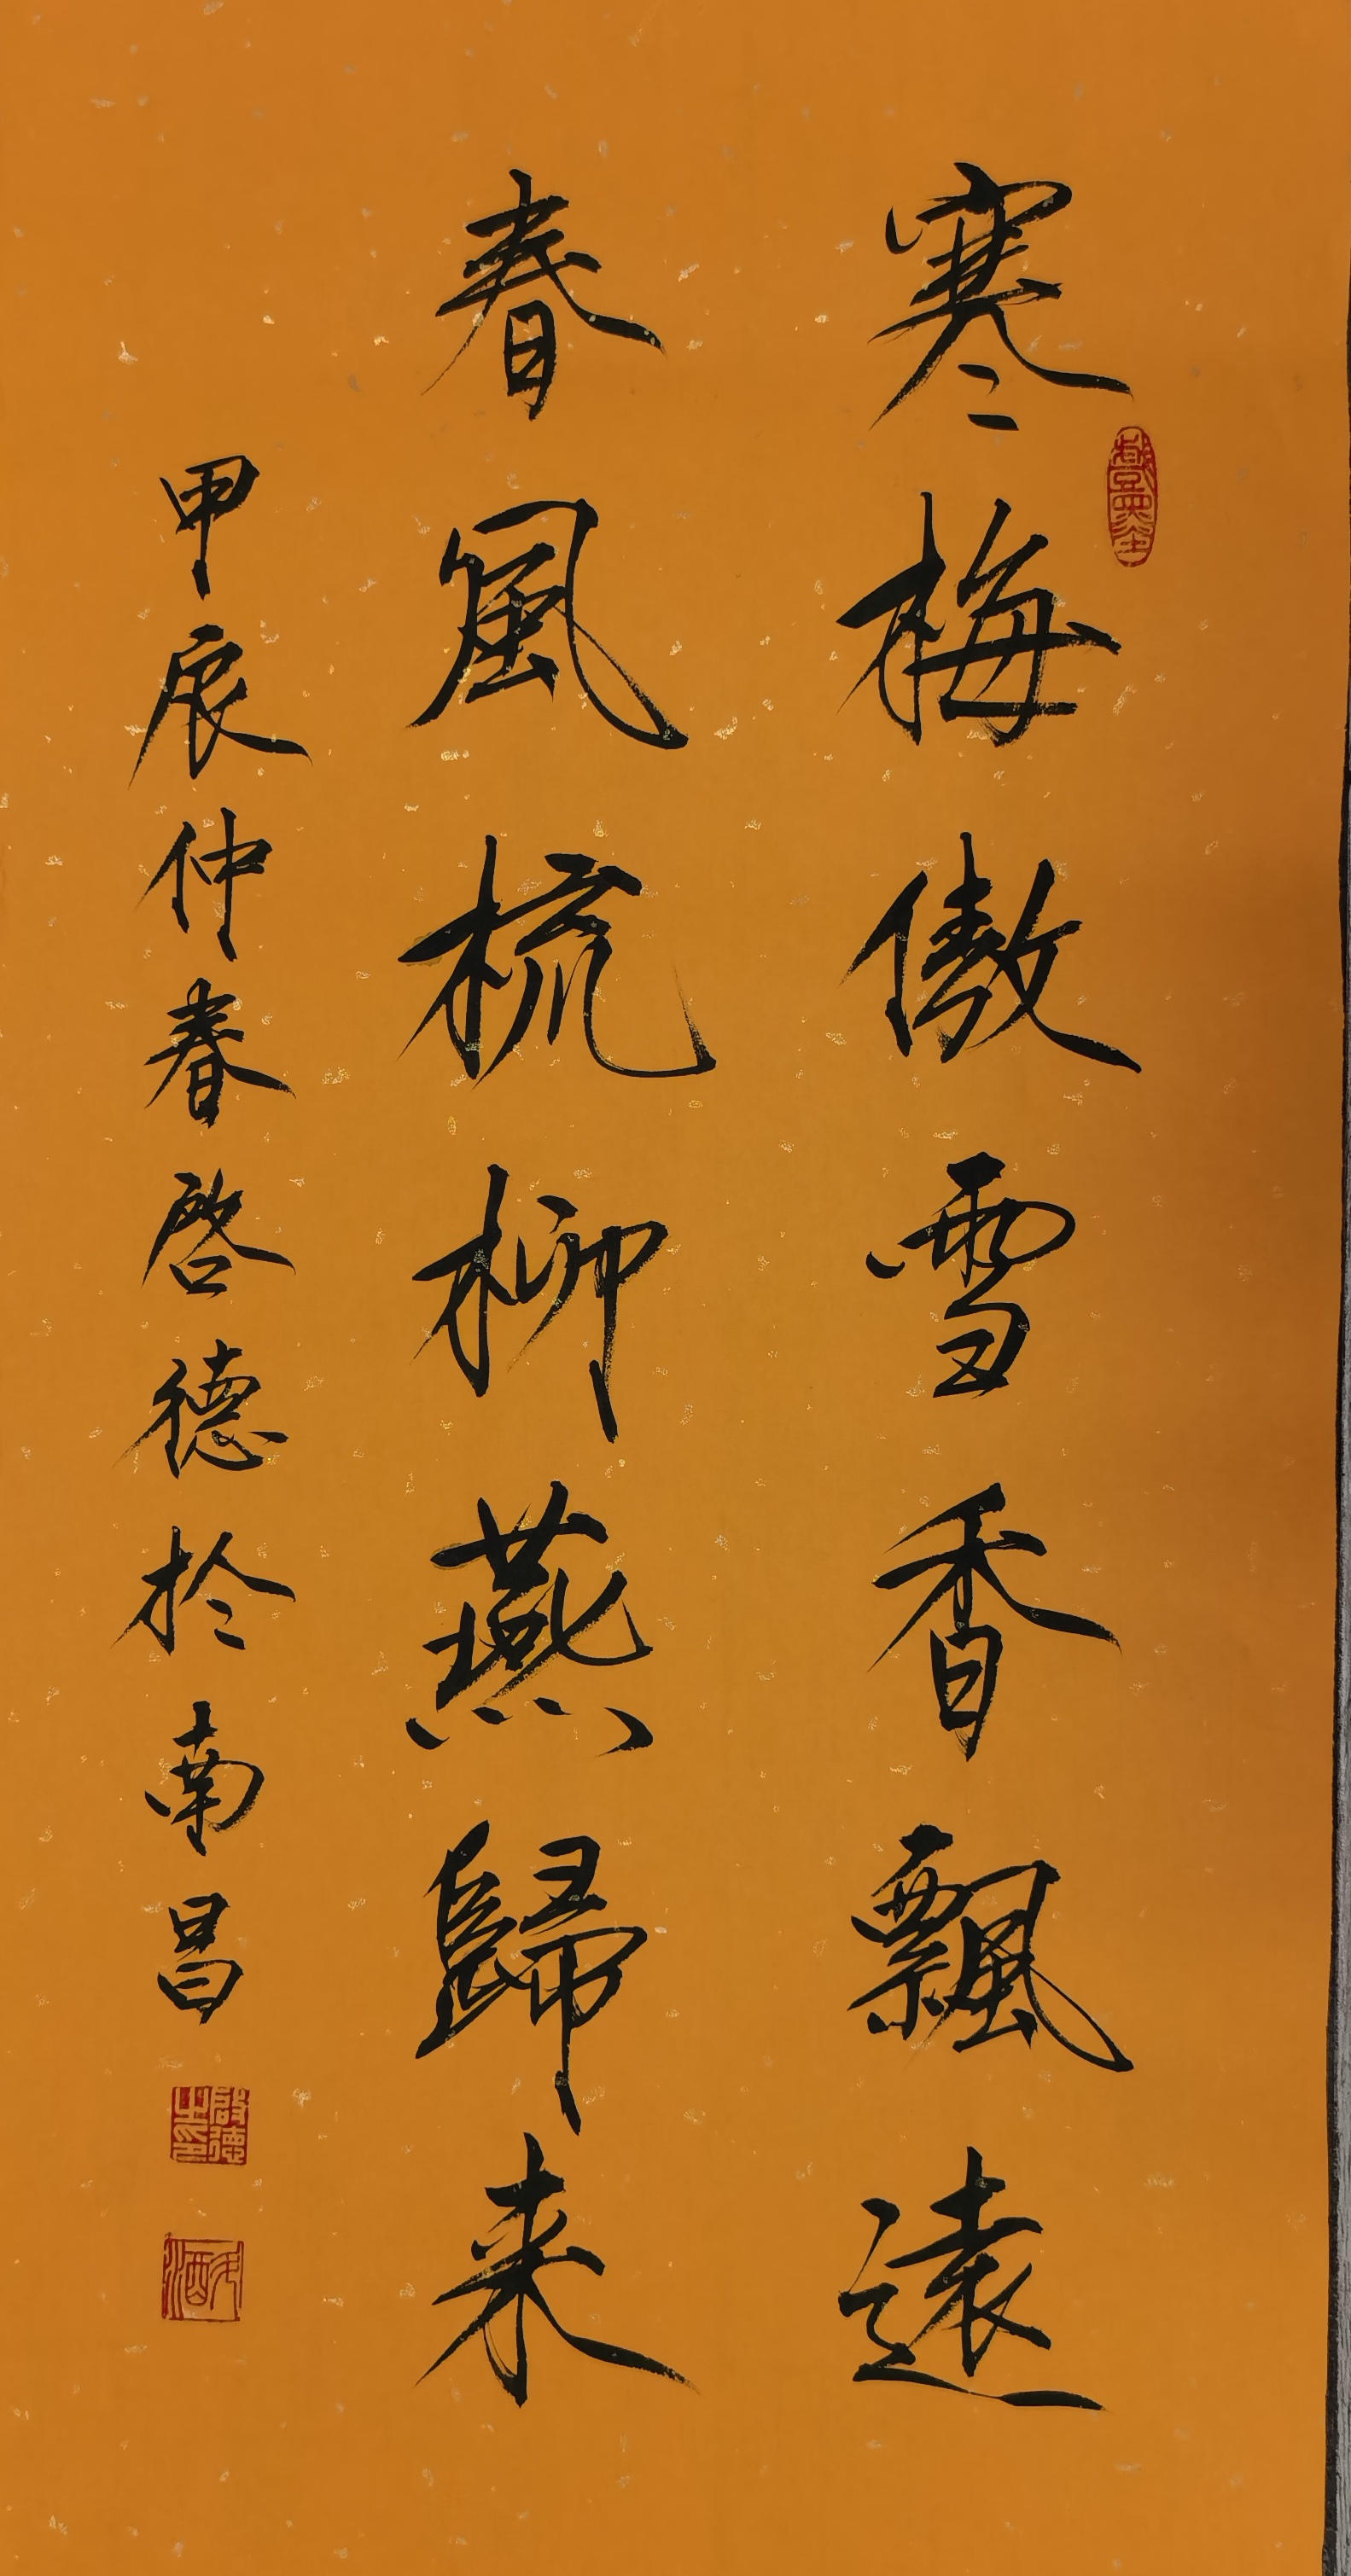 寒梅傲雪香飄遠
春風梳柳燕歸来
甲辰仲春啓德於南昌
啟德之印